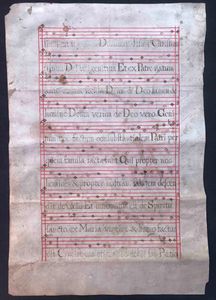 Dominum Jesum Christum
Dei unigenitum Et ex Patre natum
ante omnia secula Deum de Deo lumen de
lumine Deum verum de Deo vero. Geni
tum non factum consubstantialem Patri per
quem omnia facta sunt Qui propter nos
homines & propter nostram salutem descen
dit de celis Et incarnatus est de Spiritu
sancto ex Maria virgine & homo factus
est Crucifixus etiam pro nobis sub Pontio